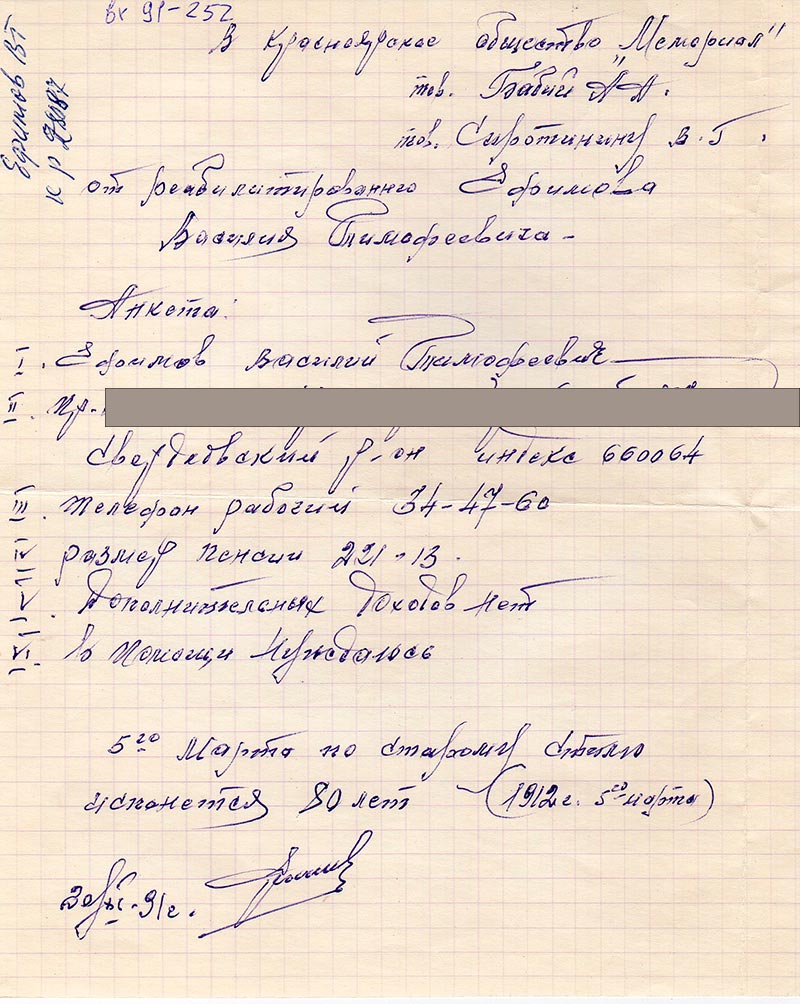 вх 91-252
Ефимов ВТ
В Красноярское общество "Мемориал"
тов. Бабий АА.
тов. Сиротинину В.Г.
от реабилитированнго Ефимова
Василия Тимофеевича -
Анкета:
I. Ефимов Василий Тимофеевич
II. Пр.
Свердловский р-он индекс 660064
III. Телефон рабочий 34-47-60
IV размер пенсии 221-13.
V. Дополнительных доходов нет
VI. В помощи Нуждаюсь
5го Марта по старому стилю
исполнется 80 лет - (1912 г. 5го марта)
-91г.